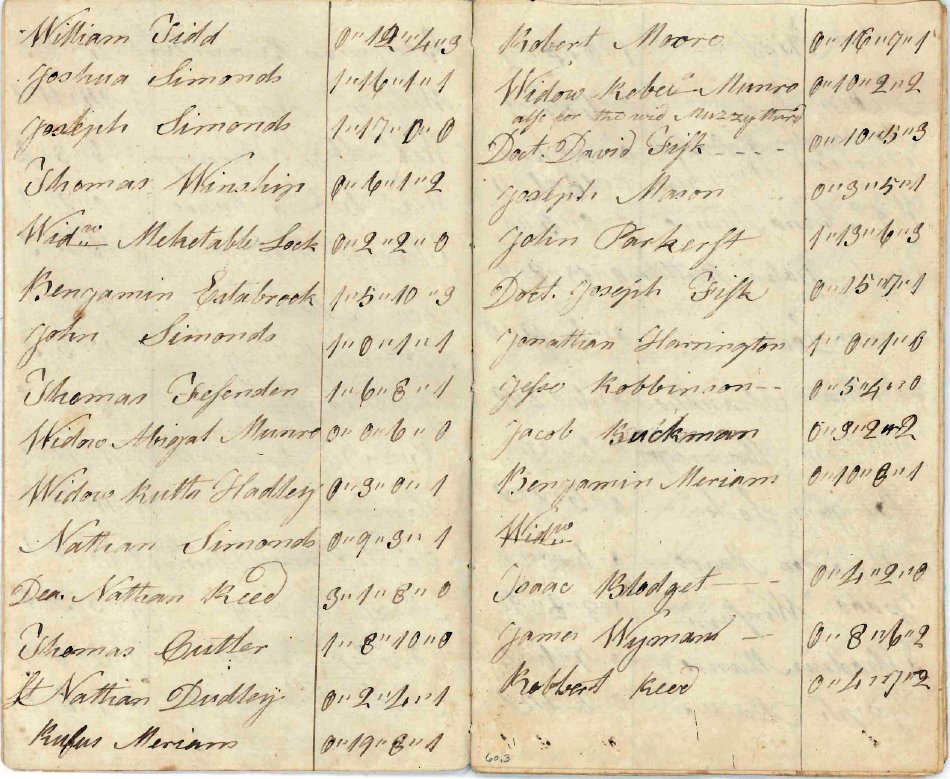 William Tidd 0"12"4"3
Joshua Simonds 1"16"1"1
Joseph Simonds 1"17"0"0
Thomas Winship 0"6"1"2
Widw Mehetable Lock 0"2"2"0
Benjamin Estabrook 1"5"10"3
John Simonds 1"0"1"1
Thomas Fesenden 1"6"8"1
Widow Abigal Munro 0"0"6"0
Widow Ruth Hadley 0"3"0"1
Nathan Simonds 0"9"3"1
Dea. Nathan Reed 3"1"8"0
Thomas Cutler 1"8"10"0
Lt Nathan Dudley 0"2"4"1
Rufus Meriam 0"19"8"1
Robert Moore 0"16"9"1
Widow Rebec Munro 0"10"2"2
also for the wid Muzzy third
Doct. David Fisk - - - - 0"10"5"3
Joseph Mason 0"3"5"1
John Parkerst 1"13"6"3
Doct. Joseph Fisk 0"15"7"1
Jonathan Harrington 1"0"1"0
Jesse Robbinson - - 0"5"4"0
Jacob Buckman 0"9"2"2
Benjamin Meriam 0"10"8"1
Widw
Isaac Blodget 0"4"2"0
James Wyman - 0"8"6"2
Robbert Reed 0"4"7"2
60.3